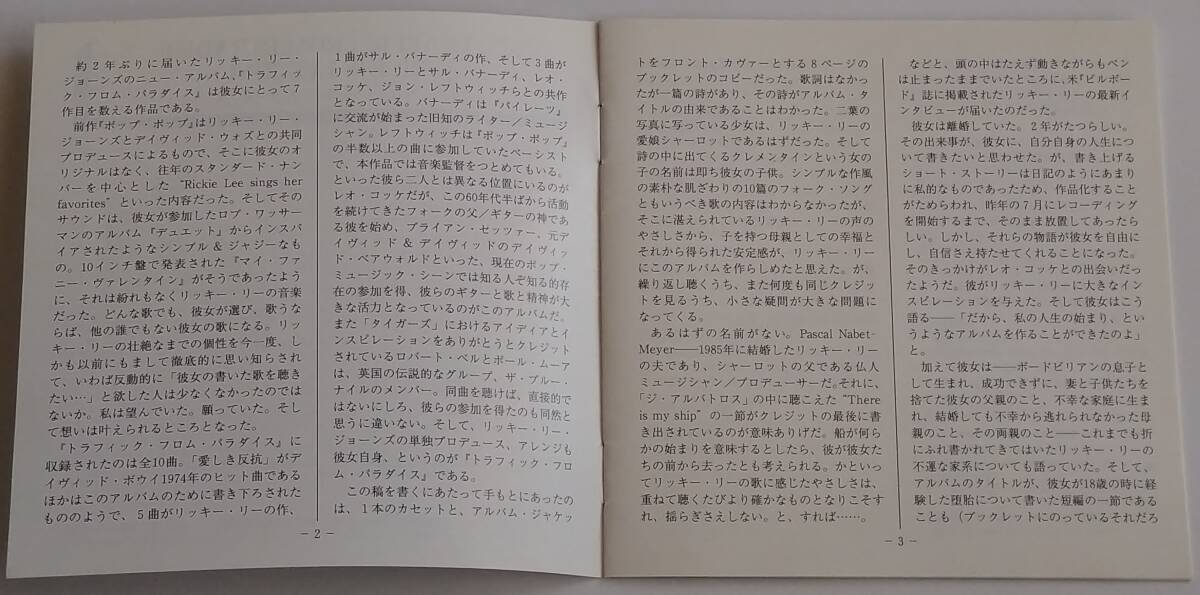 約２年ぶりに届いたリッキー・リー・
ジョーンズのニュー・アルバム、『トラフィッ
ク・フロム・パラダイス』は彼女にとって７
作目を数える作品である。
前作『ポップ・ポップ』はリッキー・リー・
ジョーンズとデイヴィッド・ウォズとの共同
プロデュースによるもので、そこに彼女のオ
リジナルはなく、往年のスタンダード・ナン
バーを中心とした“Rickie Lee sings her
favorites”といった内容だった。そしてその
サウンドは、彼女が参加したロブ・ワッサー
マンのアルバム『デュエット』からインスパ
イアされたようなシンプル＆ジャジーなも
の。10インチ盤で発表された『マイ・ファ
ニー・ヴァレンタイン』がそうであったよう
に、それは紛れもなくリッキー・リーの音楽
だった。どんな歌でも、彼女が選び、歌うな
らば、他の誰でもない彼女の歌になる。リッ
キー・リーの壮絶なまでの個性を今一度、し
かも以前にもまして徹底的に思い知らされ
て、いわば反動的に「彼女の書いた歌を聴き
たい…」と欲した人は少なくなかったのでは
ないか。私は望んでいた。願っていた。そし
て想いは叶えられるところとなった。
『トラフィック・フロム・パラダイス』に
収録されたのは全10曲。「愛しき反抗」がデ
イヴィッド・ボウイ1974年のヒット曲である
ほかはこのアルバムのために書き下ろされた
もののようで、５曲がリッキー・リーの作、
１曲がサル・バナーディの作、そして３曲が
リッキー・リーとサル・バナーディ、レオ・
コッケ、ジョン・レフトウィッチらとの共作
となっている。バナーディは『パイレーツ』
に交流が始まった旧知のライター／ミュージ
シャン。レフトウィッチは『ポップ・ポップ』
の半数以上の曲に参加していたベーシスト
で、本作品では音楽監督をつとめてもいる。
といった彼ら二人とは異なる位置にいるのが
レオ・コッケだが、この60年代半ばから活動
を続けてきたフォークの父／ギターの神であ
る彼を始め、ブライアン・セッツァー、元デ
イヴィッド＆デイヴィッドのデイヴィッ
ド・ベアウォルドといった、現在のポップ・
ミュージック・シーンでは知る人ぞ知る的存
在の参加を得、彼らのギターと歌と精神が大
きな活力となっているのがこのアルバムだ。
また「タイガーズ」におけるアイディアとイ
ンスピレーションをありがとうとクレジット
されているロバート・ベルとポール・ムーア
は、英国の伝説的なグループ、ザ・ブルー・
ナイルのメンバー。同曲を聴けば、直接的で
はないにしろ、彼らの参加を得たのも同然と
思うに違いない。そして、リッキー・リー・
ジョーンズの単独プロデュース、アレンジも
彼女自身、というのが『トラフィック・フロ
ム・パラダイス』である。
この稿を書くにあたって手もとにあったの
は、１本のカセットと、アルバム・ジャケッ
－2－
トをフロント・カヴァーとする８ページの
ブックレットのコピーだった。歌詞はなかっ
たが一篇の詩があり、その詩がアルバム・タ
イトルの由来であることはわかった。二葉の
写真に写っている少女は、リッキー・リーの
愛娘シャーロットであるはずだった。そして
詩の中に出てくるクレメンタインという女の
子の名前は即ち彼女の子供。シンプルな作風
の素朴な肌ざわりの10篇のフォーク・ソング
ともいうべき歌の内容はわからなかったが、
そこに湛えられているリッキー・リーの声の
やさしさから、子を持つ母親としての幸福と
それから得られた安定感が、リッキー・リー
にこのアルバムを作らしめたと思えた。が、
繰り返し聴くうち、また何度も同じクレジッ
トを見るうち、小さな疑問が大きな問題に
なってくる。
あるはずの名前がない。Pascal Nabet-
Meyer――1985年に結婚したリッキー・リー
の夫であり、シャーロットの父である仏人
ミュージシャン／プロデューサーだ。それに、
「ジ・アルバトロス」の中に聴こえた“There
is my ship”の一節がクレジットの最後に書
き出されているのが意味ありげだ。船が何ら
かの始まりを意味するとしたら、彼が彼女た
ちの前から去ったとも考えられる。かといっ
てリッキー・リーの歌に感じたやさしさは、
重ねて聴くたびより確かなものとなりこそす
れ、揺らぎさえしない。と、すれば……。
などと、頭の中はたえず動きながらもペン
は止まったままでいたところに、米『ビルボー
ド』誌に掲載されたリッキー・リーの最新イ
ンタビューが届いたのだった。
彼女は離婚していた。２年がたつらしい。
その出来事が、彼女に、自分自身の人生につ
いて書きたいと思わせた。が、書き上げる
ショート・ストーリーは日記のようにあまり
に私的なものであったため、作品化すること
がためらわれ、昨年の７月にレコーディング
を開始するまで、そのまま放置してあったら
しい。しかし、それらの物語が彼女を自由に
し、自信さえ持たせてくれることになった。
そのきっかけがレオ・コッケとの出会いだっ
たようだ。彼がリッキー・リーに大きなイン
スピレーションを与えた。そして彼女はこう
語る――「だから、私の人生の始まり、とい
うようなアルバムを作ることができたのよ」
と。
加えて彼女は――ボードビリアンの息子と
して生まれ、成功できずに、妻と子供たちを
捨てた彼女の父親のこと、不幸な家庭に生ま
れ、結婚しても不幸から逃れられなかった母
親のこと、その両親のこと――これまでも折
にふれ書かれてきてはいたリッキー・リーの
不運な家系についても語っていた。そして、
アルバムのタイトルが、彼女が18歳の時に経
験した堕胎について書いた短編の一節である
ことも（ブックレットにのっているそれだろ
－3－